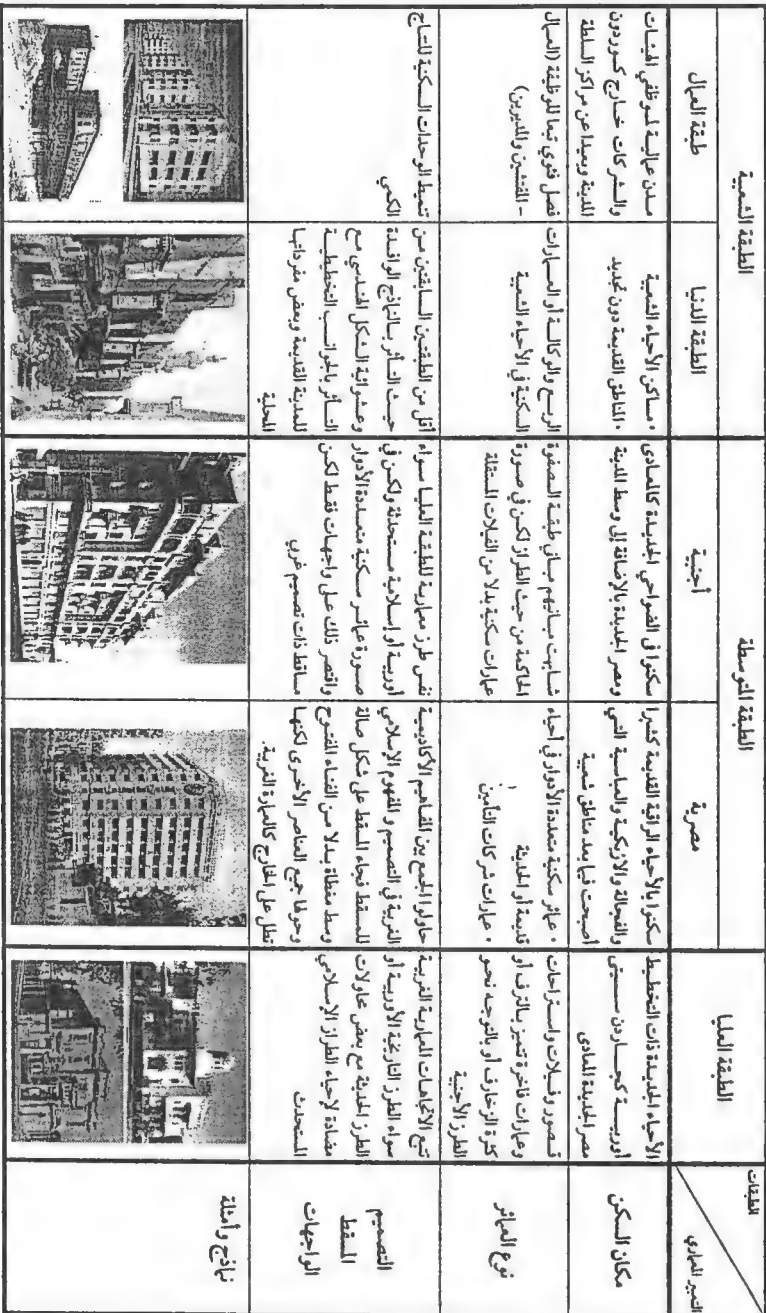 الطبقات
التعبير المعماري
الطبقة العليا
الطبقة المتوسطة
الطبقة الشعبية
مصرية
أجنبية
الطبقة الدنيا
طبقة العمال
مكان السكن
الأحياء الجديدة ذات التخطيط
أوربية كجاردن سيتى
مصر الجديدة المعادى
سكنوا بالأحياء الراقية القديمة كشبرا
والفجالة والأزبكية والعباسية التي
أصبحت فيما بعد مناطق شعبية
سكنوا في الضواحي الجديدة كالمعادى
ومصر الجديدة بالإضافة إلى وسط المدينة
• مساكن الأحياء الشعبية
• المناطق القديمة دون تحديد
مدن عمالية لموظفي الهيئات
والشركات خارج كوردون
المدينة وبعيدا عن مراكز السلطة
نوع العمائر
قصور وفيلات واستراحات
وعمارات فاخرة تتميز بالترف أو
كثرة الزخارف أو بالتوجه نحو
الطرز الأجنبية
• عمائر سكنية متعددة الأدوار في أحياء
قديمة أو الحديثة
• عمارات شركات التأمين
شابهت مبانيهم مباني طبقة الصفوة
الحاكمة من حيث الطراز لكن في صورة
عمارات سكنية بدلا من الفيلات المستقلة
الربع والوكالة أو العمارات
السكنية في الأحياء الشعبية
فصل فئوي تبعا للوظيفة (العمال
- المفتشين والمديرين)
التصميم
المسقط
الواجهات
تتبع الاتجاهات المعمارية الغربية
سواء الطرز التاريخية الأوربية أو
الطرز الحديثة مع بعض محاولات
مضادة لإحياء الطراز الإسلامي
المستحدث
حاولوا الجمع بين المفاهيم الأكاديمية
الغربية في التصميم والمفهوم الإسلامي
للمسقط فجاء المسقط على شكل صالة
وسط مغطاة بدلا من الفناء المفتوح
وحولها جميع العناصر الأخرى لكنها
تطل على الخارج كالعمارة الغربية.
نفس طرز معمارية للطبقة العليا سواء
أوربية أو إسلامية مستحدثة ولكن في
صورة عمائر سكنية متعددة الأدوار
واقتصر ذلك على واجهات فقط لكن
مساقط ذات تصميم غربي
أقل من الطبقتين السابقتين من
حيث التأثر بالنماذج الوافدة
وعشوائية الشكل الهندسي مع
التأثر بالجوانب التخطيطية
للمدينة القديمة وبعض مفرداتها
المحلية
تنميط الوحدات السكنية للنتاج
الكمي
نماذج وأمثلة